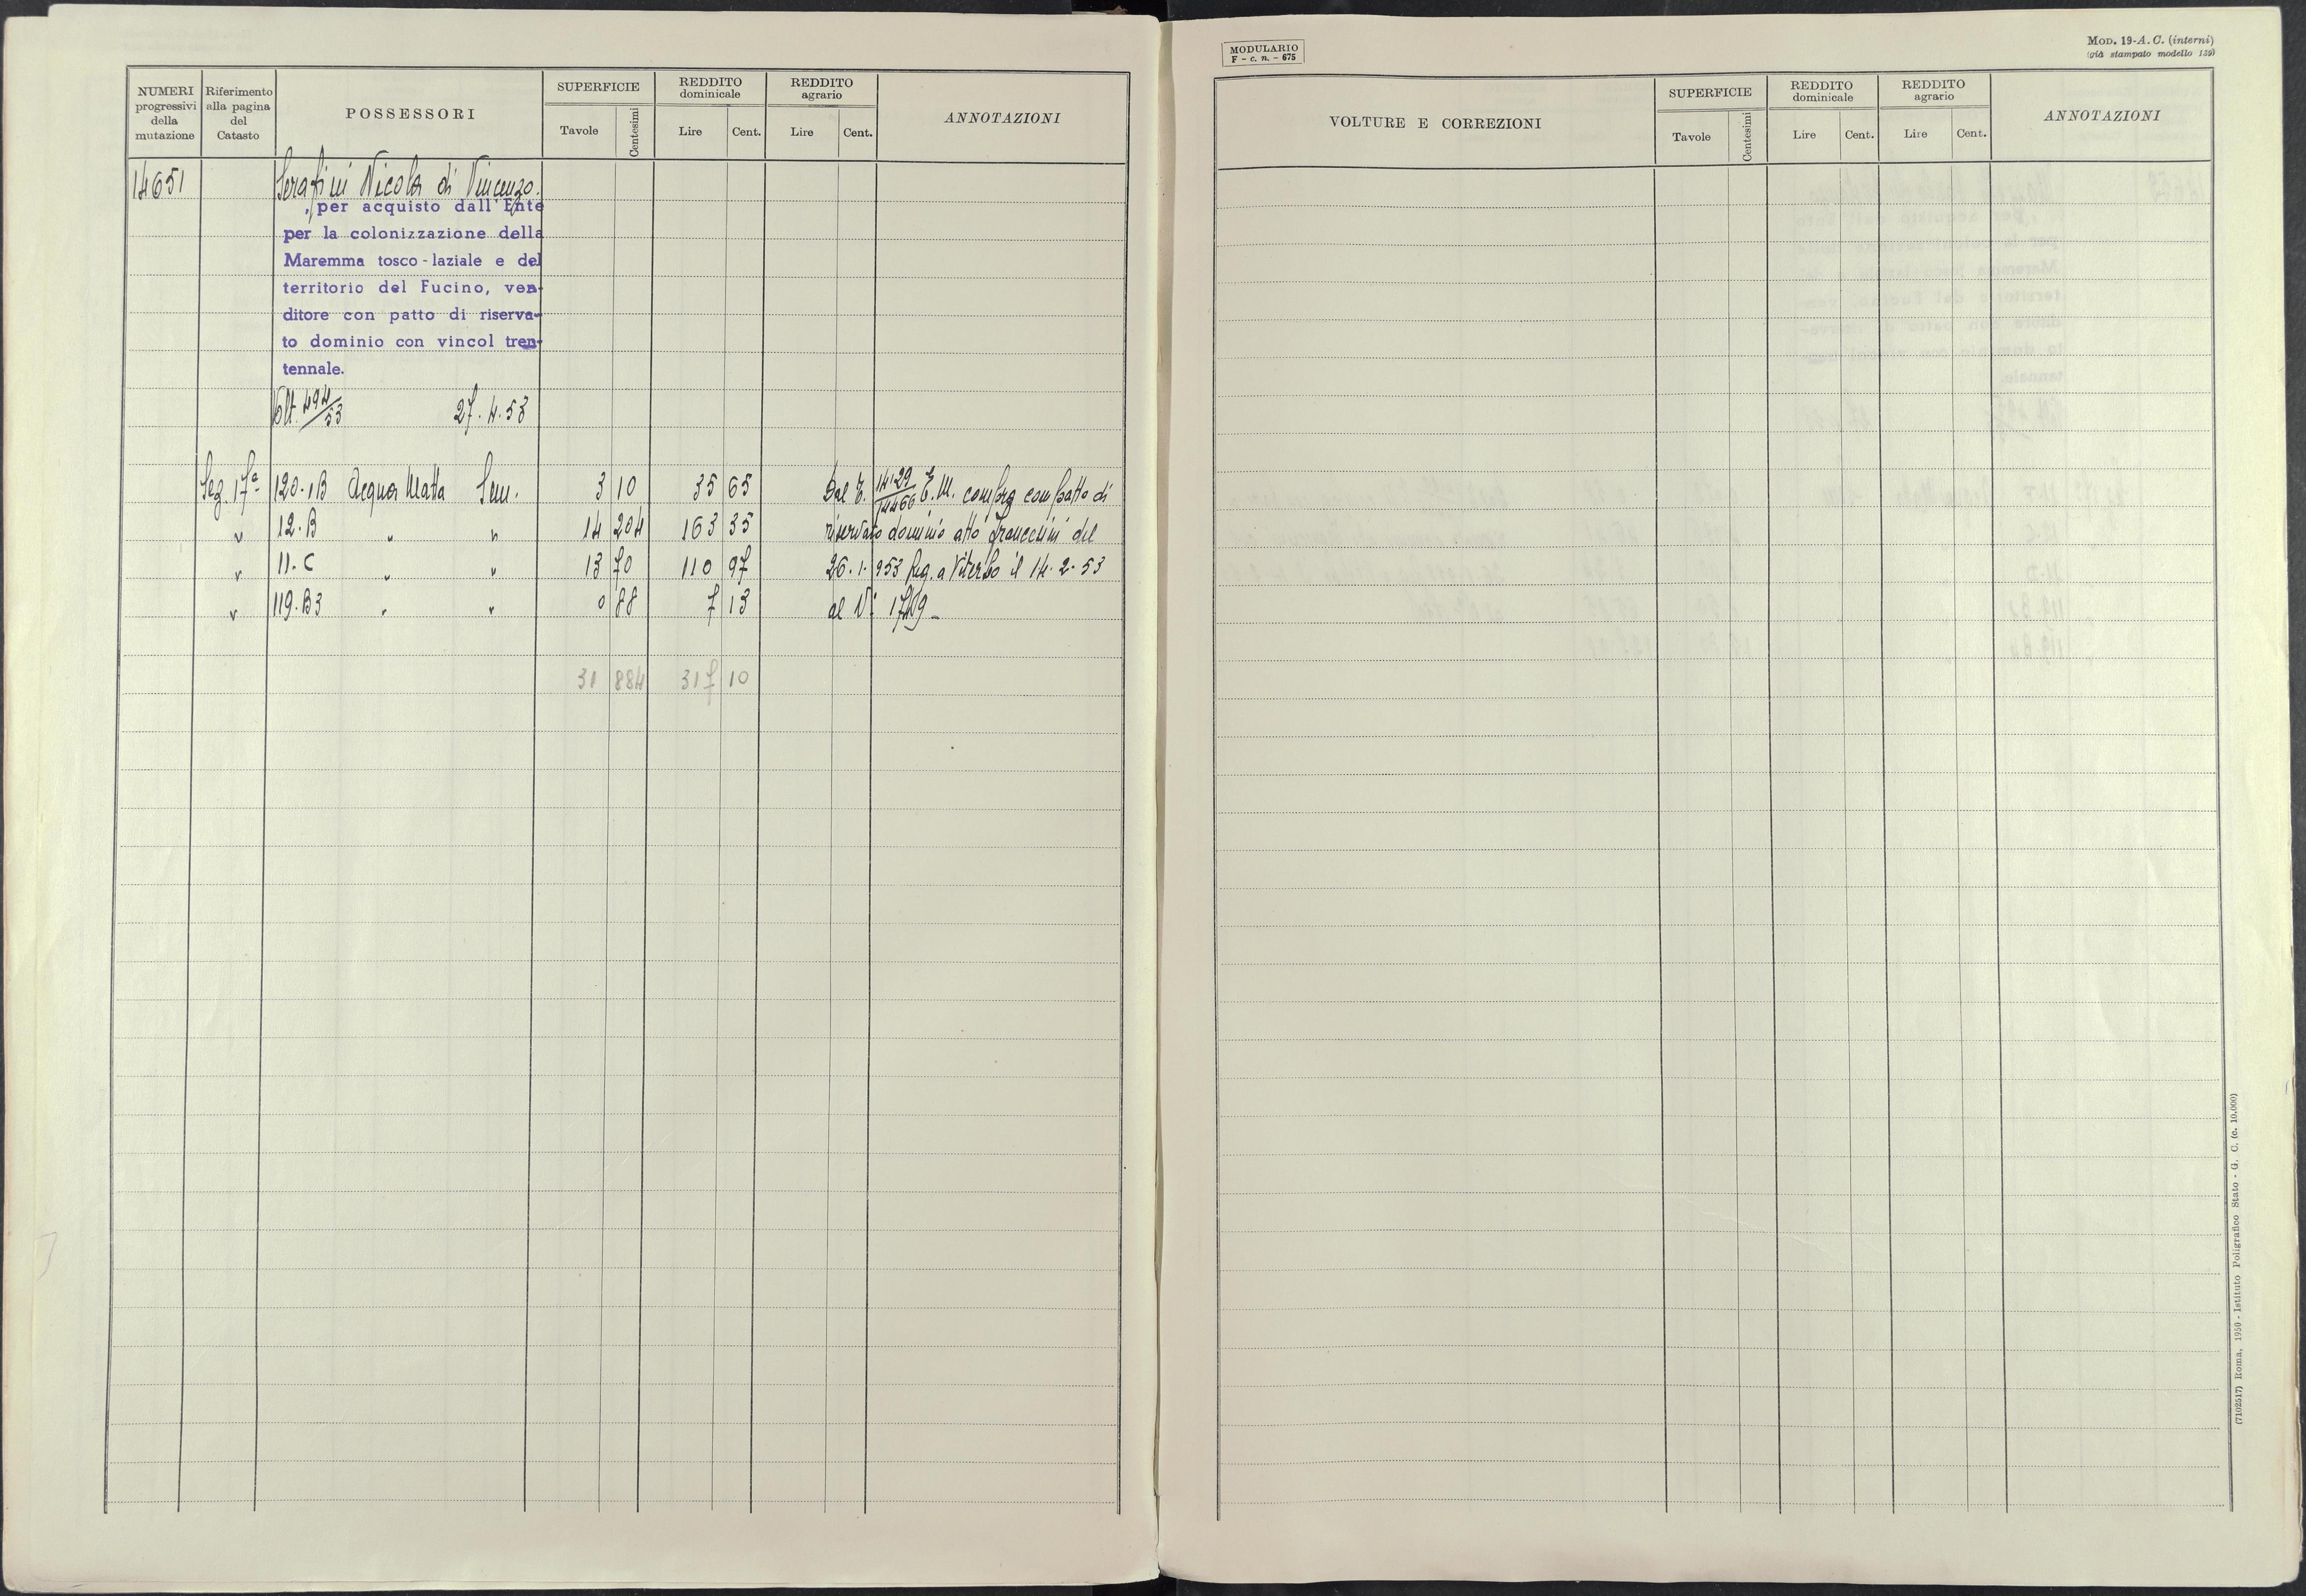 NUMERI progressivi della mutazione
Riferimento alla pagina del Catasto
POSSESSORI
SUPERFICIE
Tavole
Centesimi
REDDITO dominicale
Lire
Cent.
REDDITO agrario
Lire
Cent.
ANNOTAZIONI
14651 Serafini Nicola di Vincenzo.
, per acquisto dall'Ente
per la colonizzazione della
Maremma tosco-laziale e del
territorio del Fucino, ven-
ditore con patto di riserva-
to dominio con vincol tren-
tennale.
Vlt. 494/53 27.4.53
Sez. 17ª 120.1B Acqua Matta Sem. 3 10 35 65
" 12.B " " 14 204 163 35
" 11.C " " 13 70 110 97
" 119.B3 " " 0 88 7 13
31 884 317 10
Dal 14129/14466 E.M. compra con patto di
riservato dominio atto Franceschini del
26.1.953 Reg. a Viterbo il 14.2.53
al N°
MODULARIO
F - c. n. - 675
MOD. 19-A. C. (interni)
(già stampato modello 139)
VOLTURE E CORREZIONI
SUPERFICIE
Tavole
Centesimi
REDDITO dominicale
Lire
Cent.
REDDITO agrario
Lire
Cent.
ANNOTAZIONI
(7102517) Roma, 1950 - Istituto Poligrafico Stato - G. C. (c. 10.000)